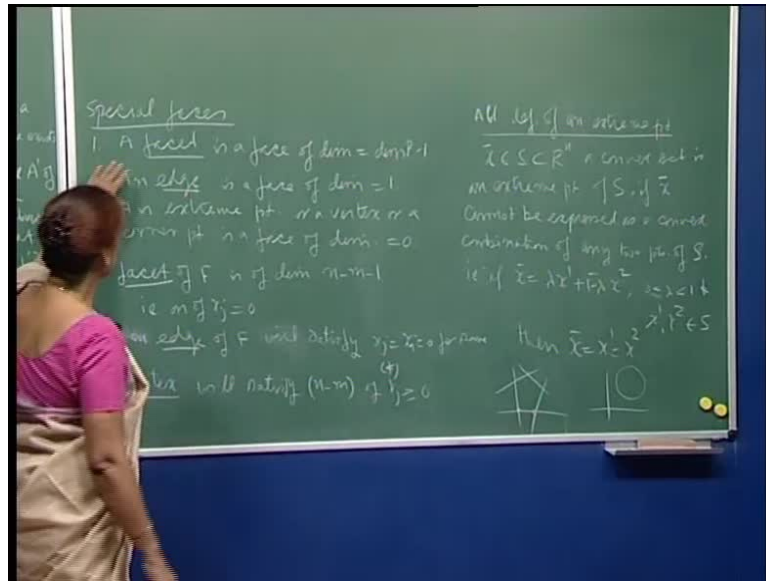 Special faces
1. A facet is a face of dim = dim P -1
An edge is a face of dim = 1.
An extreme pt. or a vertex or a
corner pt is a face of dim. = 0
facet of F is of dim n-m-1
ie n of xj = 0
an edge of F will satisfy xj = = 0 for some
vertex will satisfy (n-m) of xj ≥ 0
Alt def of an extreme pt
x̄ ∈ S ⊂ R^n a convex set is
an extreme pt of S, if x̄
cannot be expressed as a convex
combination of any two pts. of S.
ie if x̄ = λx^1 + 1-λ x^2, 0 ≤ λ ≤ 1 &
x^1, x^2 ∈ S
then x̄ = x^1 = x^2
a
A' of